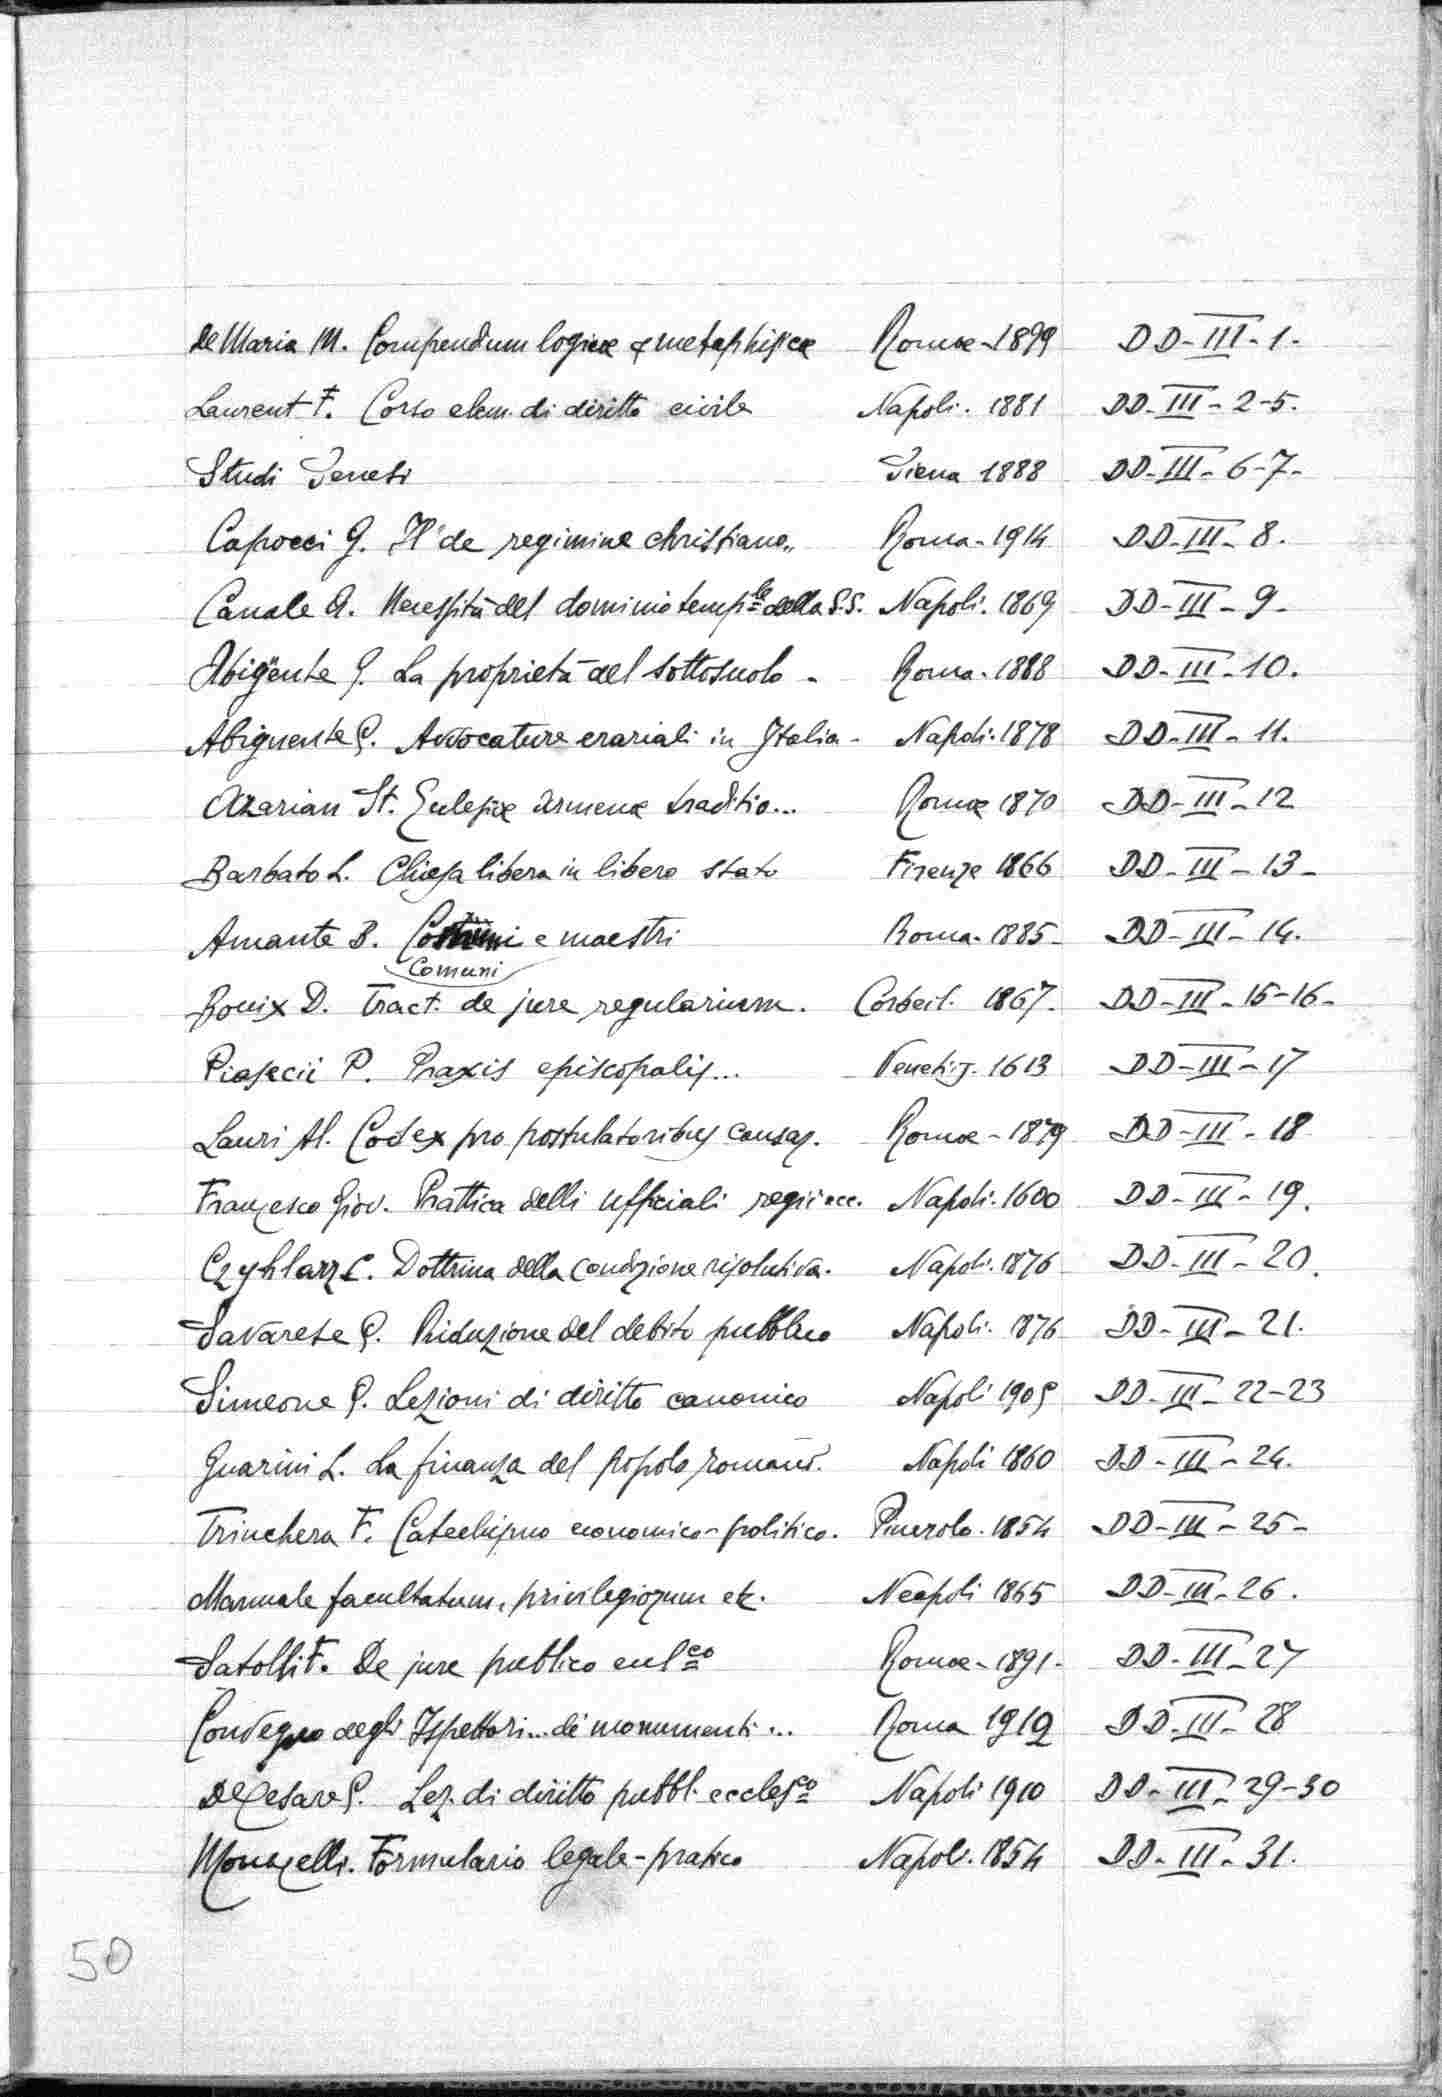 De Maria M. Compendium logicæ & metaphisicæ Romæ - 1899 DD-III-1-
Laurent F. Corso elem. di diritto civile Napoli. 1881 DD-III-2-5.
Studi Senesi Siena 1888 DD-III-6-7-
Capocci G. Il "de regimine christiano" Roma-1914 DD-III-8.
Canale A. Necessità del dominio temp.le della S.S. Napoli. 1869 DD-III-9-
Abignente G. La proprietà del sottosuolo - Roma-1888 DD-III-10.
Abignente G. Avvocature erariali in Italia- Napoli-1878 DD-III-11.
Azarian St. Eclesiæ Armenæ traditio... Romæ 1870 DD-III-12
Barbato L. Chiesa libera in libero stato Firenze 1866 DD-III-13-
Amante B. e maestri Roma-1885- DD-III-14.
Comuni
Bouix D. Tract. de jure regularium. Corbeil. 1867. DD-III-15-16-
Piasecii P. Praxis episcopalis... Venetiis. 1613 DD-III-17
Lauri Al. Codex pro postulatoribus causar. Romæ - 1879 DD-III-18
Franzesco Giov. Prattica delli ufficiali regii ecc. Napoli-1600 DD-III-19.
Czyhlarz C. Dottrina della condizione risolutiva. Napoli-1876 DD-III-20.
Savarese G. Riduzione del debito pubblico Napoli. 1876 DD-III-21.
Simeone G. Lezioni di diritto canonico Napoli 1905 DD-III-22-23
Guarini L. La finanza del popolo romano. Napoli 1860 DD-III-24.
Trinchera F. Catechismo economico-politico. Pinerolo-1854 DD-III-25-
Manuale facultatum, privilegiorum etc. Neapoli 1865 DD-III-26.
Satolli F. De jure publico eccl.co Romæ-1891- DD-III-27
Convegno degli Ispettori... dei monumenti... Roma 1912 DD-III-28
De Cesare G. Lez. di diritto pubbl. eccles.co Napoli 1910 DD-III-29-30
Monacelli. Formulario legale-pratico Napoli-1854 DD-III-31.
50